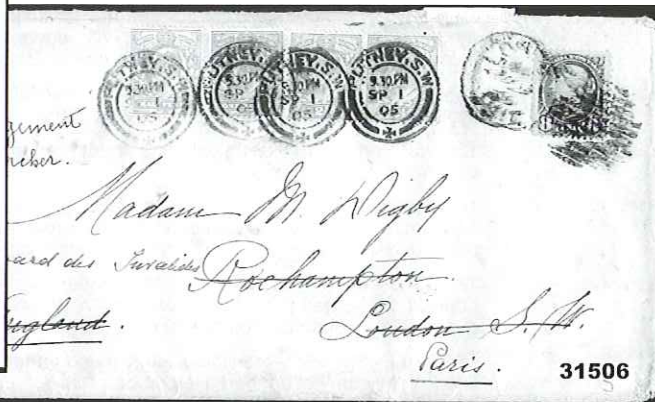 PUTNEY.S.W
9.30PM
SP 1
05
PUTNEY.S.W
9.30PM
SP 1
05
PUTNEY.S.W
9.30PM
SP 1
05
PUTNEY.S.W
9.30PM
SP 1
05
gement
Madam M. Digby
ard des Invalides Rochampton
England. London S.W.
Paris.
31506